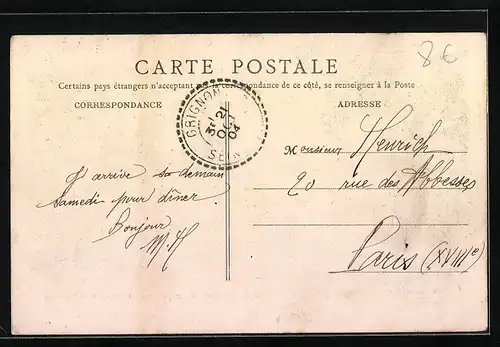 8€
CARTE POSTALE
Certains pays étrangers n'acceptant pas la correspondance de ce côté, se renseigner à la Poste
CORRESPONDANCE
ADRESSE
GRIGNON
21
OCT
04
SEINE
Monsieur Henrich
20 rue des Abbesses
Paris (XVIIIe)
J'arrive demain
Samedi pour dîner
Bonjour